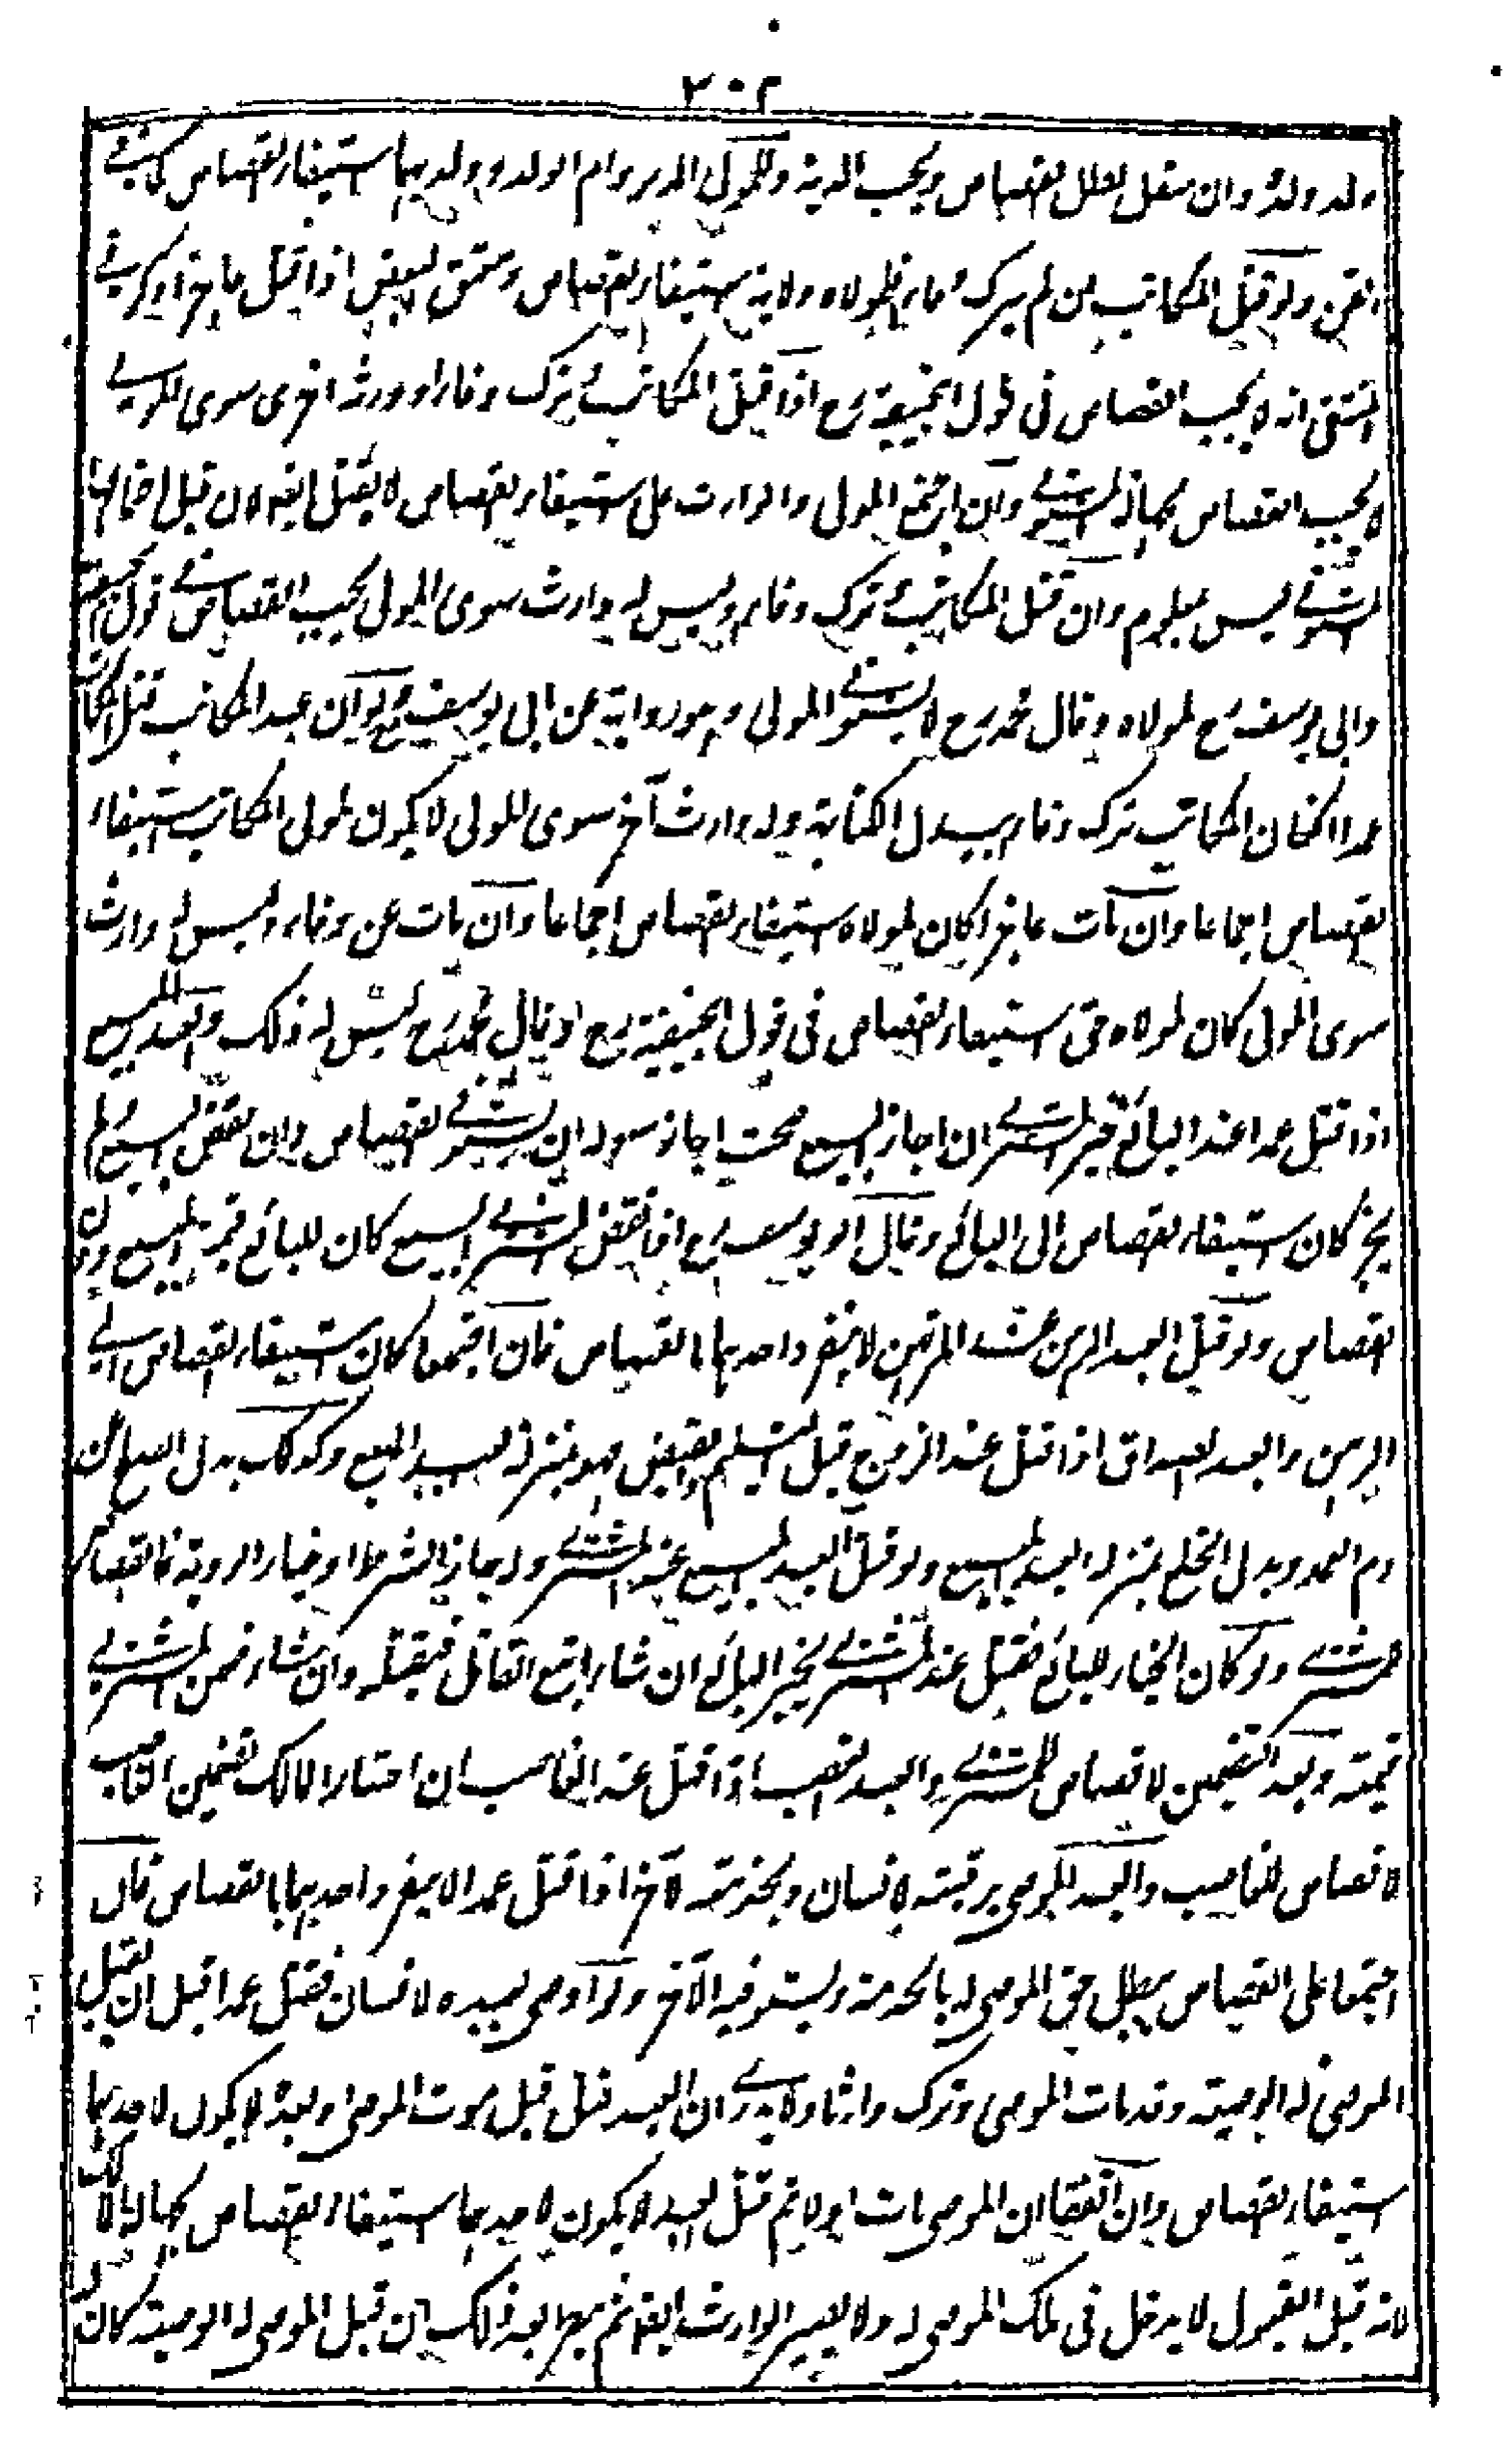 ٣٠٢
ولد ولده وان سفل بطل القصاص ويجب الدية وللمولى المدبر وام الولد وولديهما استيفاء القصاص كما في
القن ولو قتل المكاتب ان لم يترك وفاء فلمولاه ولاية استيفاء القصاص ومعتق البعض اذا قتل عاجزا ذكر في
المنتقى انه لا يجب القصاص في قول ابيحنيفة رح اذا قتل المكاتب وترك وفاء او ورثة اخرى سوى المولى
لا يجب القصاص لجهالة المستوفي وان اجتمع المولى والوارث على استيفاء القصاص لا يقتل ايضا لان قبل اجتماعهما
المستوفي ليس بمعلوم وان قتل المكاتب وترك وفاء وليس له وارث سوى المولى يجب القصاص في قول ابيحنيفة
وابي يوسف رح لمولاه وقال محمد رح لا يستوفي المولى وهو رواية عن ابي يوسف رح ولو ان عبد المكاتب قتل المكاتب
عمدا انكان المكاتب ترك وفاء ببدل الكتابة وله وارث آخر سوى المولى لا يكون لمولى المكاتب استيفاء
القصاص اجماعا وان مات عاجزا كان لمولاه استيفاء القصاص اجماعا وان مات عن وفاء وليس له وارث
سوى المولى كان لمولاه حق استيفاء القصاص في قول ابيحنيفة رح وقال محمد رح ليس له ذلك والعبد المبيع
اذا قتل عمدا عند البائع فخير المشتري ان اجاز البيع صحت اجازته وله ان يستوفي القصاص وان نقض البيع ولم
يجز كان استيفاء القصاص الى البائع وقال ابو يوسف رح اذا نقض المشتري البيع كان للبائع قيمة المبيع دون
القصاص ولو قتل العبد الرهن عند المرتهن لا ينفرد احدهما بالقصاص فان اجتمعا كان استيفاء القصاص الى
الراهن والعبد الصداق اذا قتل عند الزوج قبل التسليم والقبض فهو بمنزلة العبد المبيع وكذلك بدل الصلح عن
دم العمد وبدل الخلع بمنزلة العبد المبيع ولو قتل العبد المبيع عند المشتري وله خيار الشرط او خيار الروية فالقصاص
للمشتري ولو كان الخيار للبائع فقتل عند المشتري يخير البائع ان شاء اتبع القاتل فيقتله وان شاء ضمن المشتري
قيمته وبعد التضمين لا قصاص للمشتري والعبد الغصب اذا قتل عند الغاصب ان اختار المالك تضمين الغاصب
لا قصاص للغاصب والعبد الموصى برقبته لانسان وبخدمته لآخر اذا قتل عمدا لا ينفرد احدهما بالقصاص فان
اجتمعا على القصاص يبطل حق الموصى له بالخدمة ويستوفيه الآخر ولو اوصى بعبده لانسان فقتل عمدا قبل ان يقبل
الموصى له الوصية وقد مات الموصي وترك وارثا ولا يدرى ان العبد قتل قبل موت الموصي او بعده لا يكون لاحدهما
استيفاء القصاص وان اتفقا ان الموصي مات اولا ثم قتل العبد لا يكون لاحدهما استيفاء القصاص لجهالة المالك
لانه قبل القبول لا يدخل في ملك الموصى له ولا يصير للوارث ايضا ثم بعد ذلك ان قبل الموصى له الوصية كان له